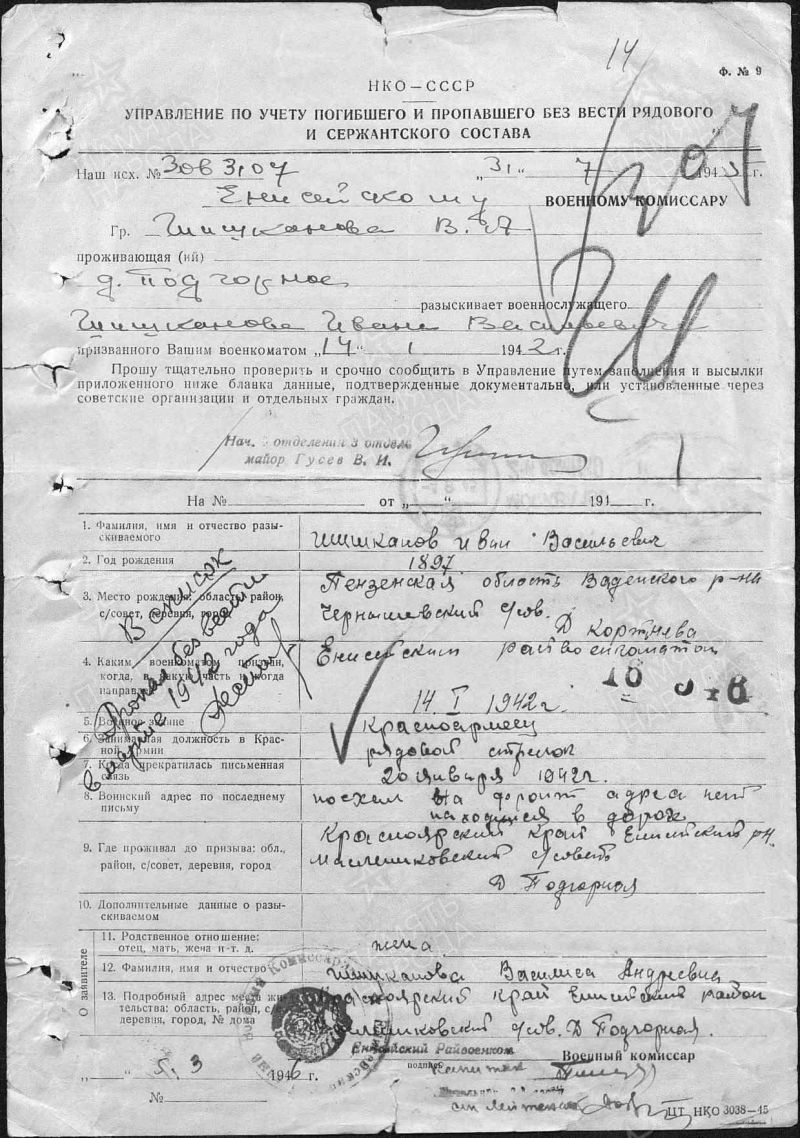 14
Ф. № 9
НКО—СССР
УПРАВЛЕНИЕ ПО УЧЕТУ ПОГИБШЕГО И ПРОПАВШЕГО БЕЗ ВЕСТИ РЯДОВОГО
И СЕРЖАНТСКОГО СОСТАВА
Наш исх. № 30в 3,07 „31“ 7 1945 г.
307
Енисейскому ВОЕННОМУ КОМИССАРУ
Гр. Шишканова В. А
проживающая (ий)
д. Подгорное
разыскивает военнослужащего
Шишканова Ивана Васильевича
призванного Вашим военкоматом „14“ 1 1942 г.
Прошу тщательно проверить и срочно сообщить в Управление путем заполнения и высылки
приложенного ниже бланка данные, подтвержденные документально, или установленные через
советские организации и отдельных граждан.
Нач. 3 отделения 3 отдела
майор Гусев В. И.
На № от „ “ 191 г.
1. Фамилия, имя и отчество разы-
скиваемого
Шишканов Иван Васильевич
2. Год рождения 1897
3. Место рождения: область, район,
с/совет, деревня, город
Пензенская область Ваденского р-на
Чернышевский с/сов.
Д Кортнева
4. Каким военкоматом призван,
когда, в какую часть и когда
направлен
Енисейским райвоенкоматом
14. I 1942г.
В список
Пропал без вести
в марте 1942 года
5. Военное звание Красноармеец
6. Занимаемая должность в Крас-
ной Армии
рядовой стрелок
7. Когда прекратилась письменная
связь
20 января 1942г.
8. Воинский адрес по последнему
письму
поехал на фронт адреса нет
находился в дороге
9. Где проживал до призыва: обл.,
район, с/совет, деревня, город
Красноярский край Енисейский рн.
Маслешковский с/совет
Д Подгорная
10. Дополнительные данные о разы-
скиваемом
О заявителе
11. Родственное отношение:
отец, мать, жена и т. д.
жена
12. Фамилия, имя и отчество Шишканова Василиса Андреевна
13. Подробный адрес места жи-
тельства: область, район, с/совет,
деревня, город, № дома
Красноярский край Енисейский район
Маслешковский с/сов. Д Подгорная.
Енисейский Райвоенком Военный комиссар
подпись
капитан
„ “ 5. 3 1946 г.
№
ст лейтенант
ЦТ НКО 3038—45